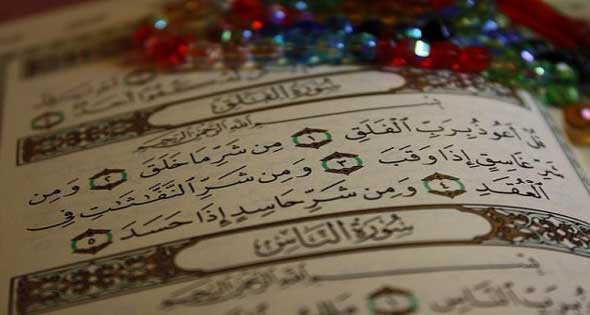 سُورَةُ الفَلَقِ
بِسْمِ اللَّهِ الرَّحْمَٰنِ الرَّحِيمِ
قُلْ أَعُوذُ بِرَبِّ الْفَلَقِ ١ مِن شَرِّ مَا خَلَقَ ٢ وَمِن
شَرِّ غَاسِقٍ إِذَا وَقَبَ ٣ وَمِن شَرِّ النَّفَّاثَاتِ فِي
الْعُقَدِ ٤ وَمِن شَرِّ حَاسِدٍ إِذَا حَسَدَ ٥
سُورَةُ النَّاسِ
بِسْمِ اللَّهِ الرَّحْمَٰنِ الرَّحِيمِ
بِرَبِّ النَّاسِ ١